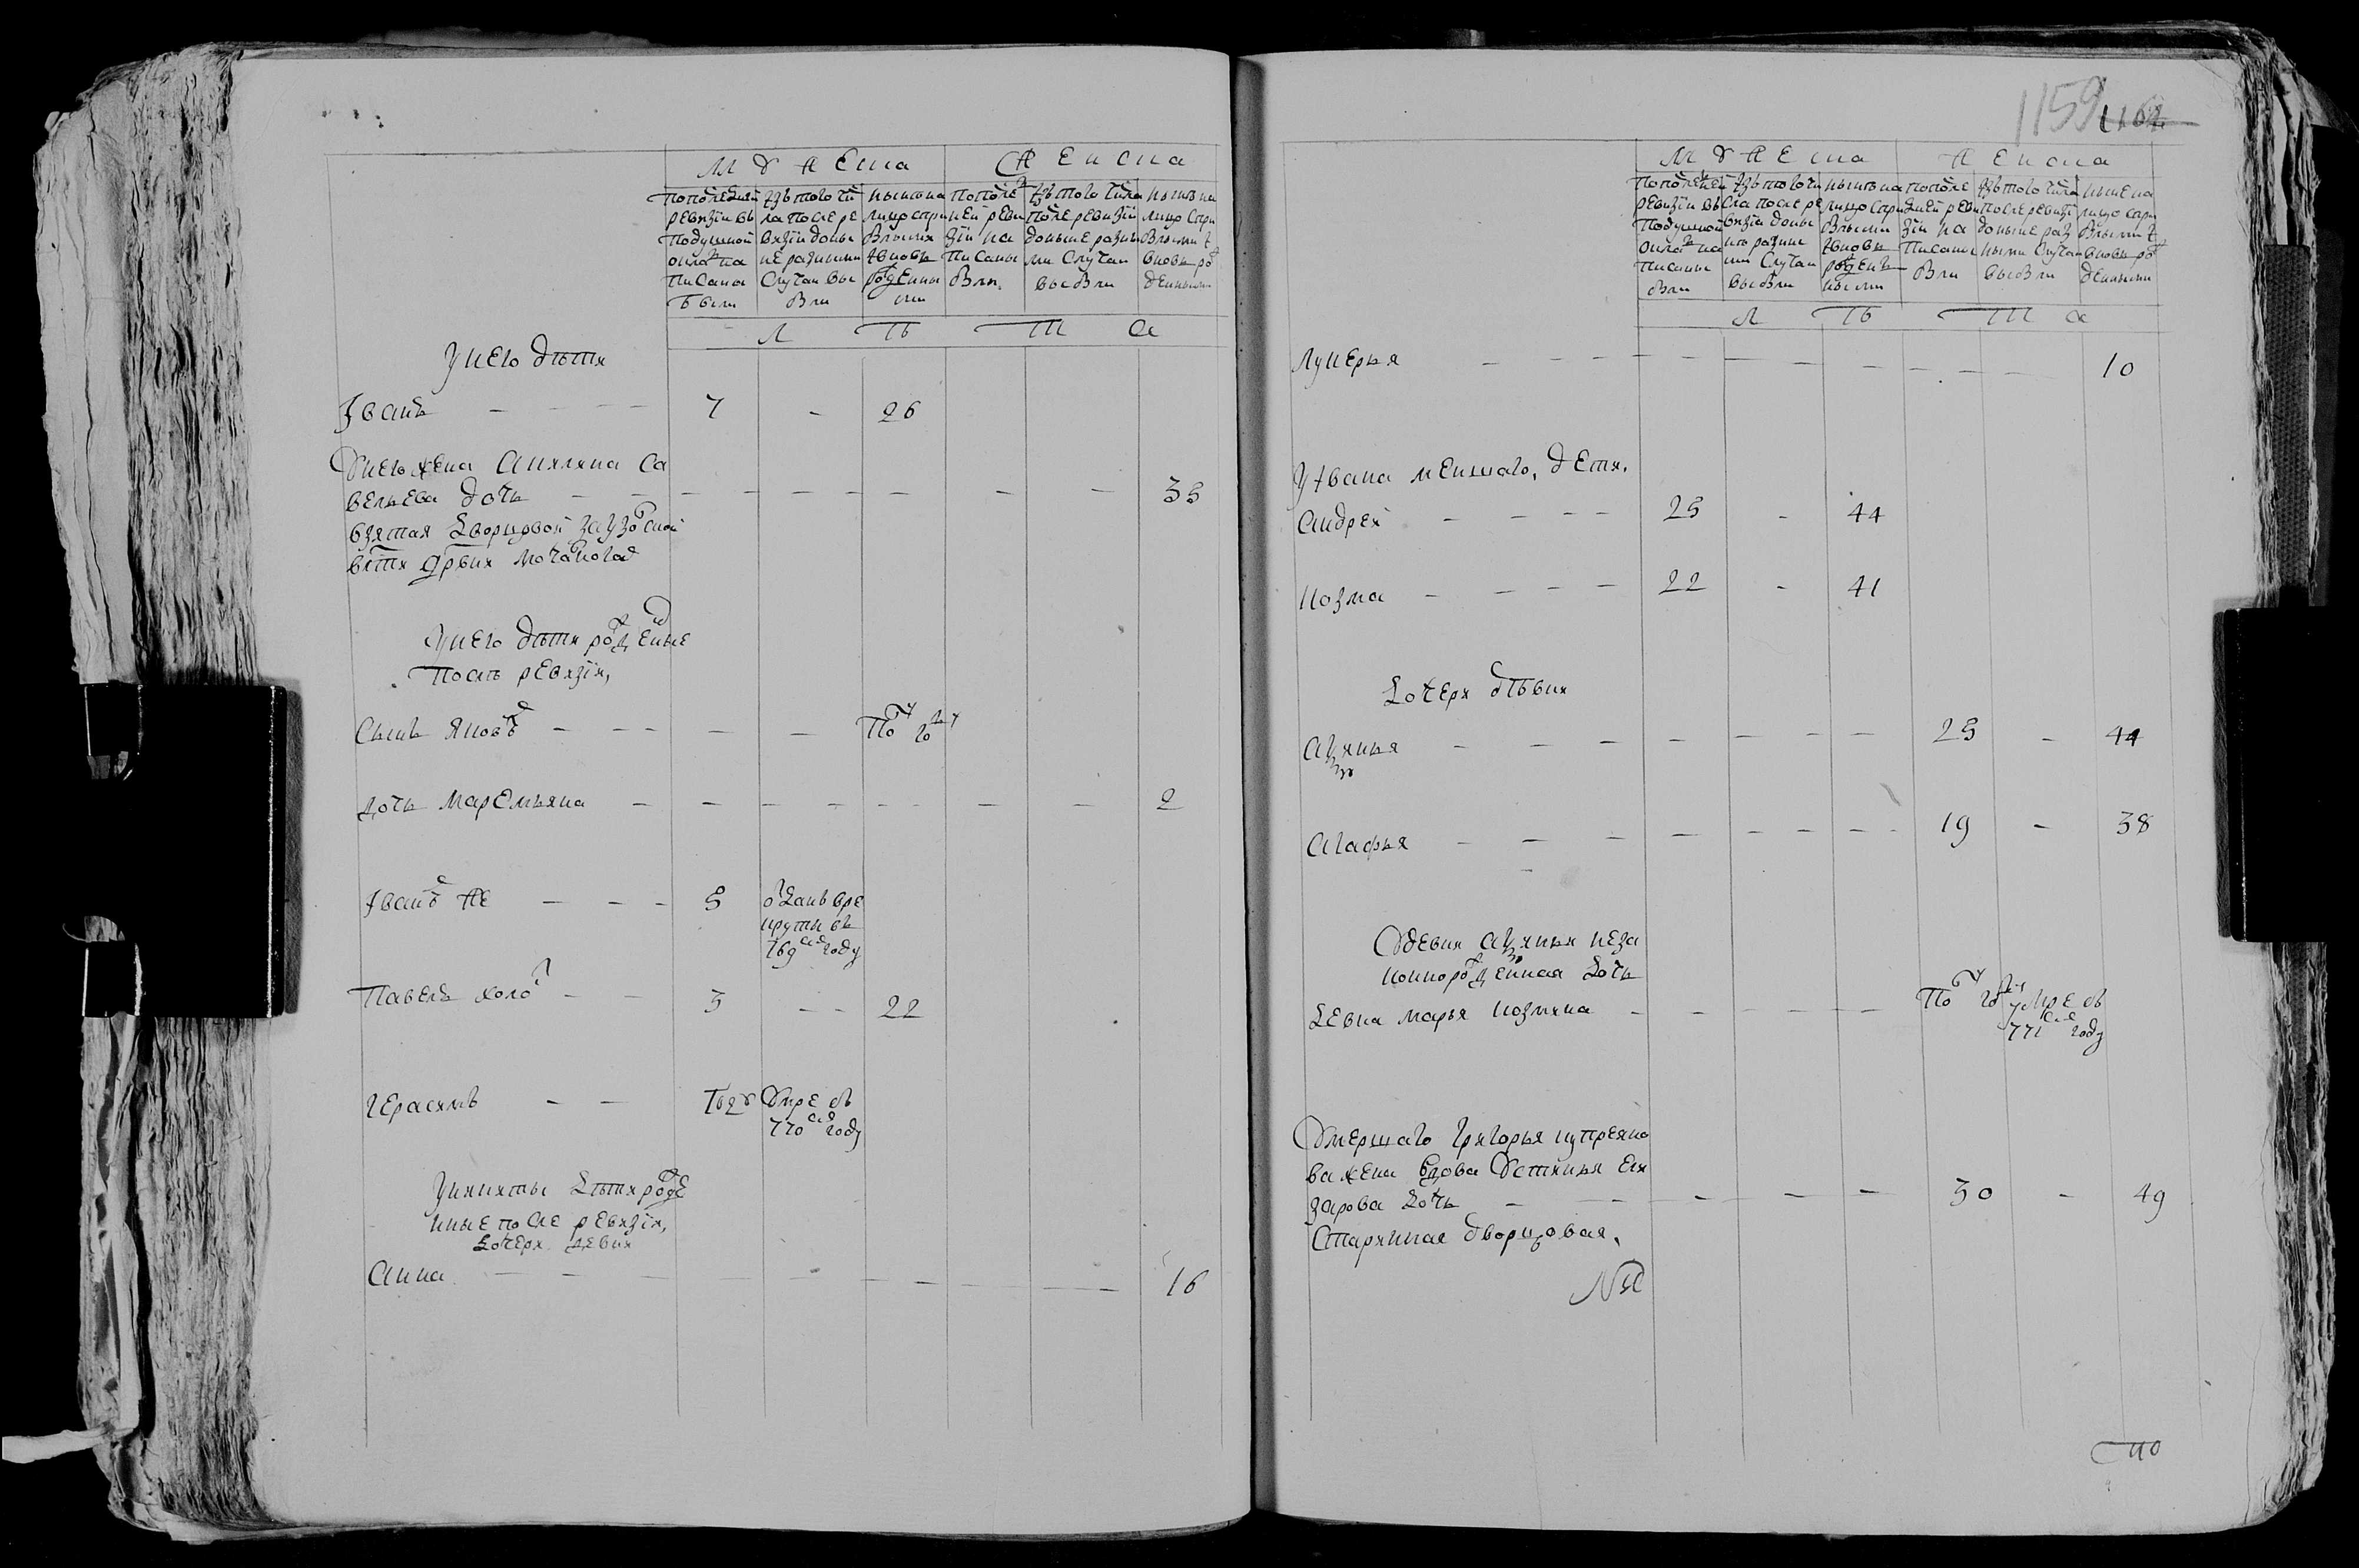 Мужеска Женска
По последней
ревизїи въ
подушной
окладъ на
писаны
были
Изъ того чи
ла после ре
визїи доны
не разными
случаи вы
были
ныне на
лицо сприбылыми
и вновь
рожденны
ми
По после
ней реви
зїи на
писаны
были
Изъ того числа
после ревизїи
доныне разны
ми случаи
выбыли
ныне на
лицо спри
былыми и
вновь ро
жденными
Л Ѣ Т А
У него дѣти
Іванъ 7 - 26
У него жена Акилина Са
вельева дочь 35
взятая дворцовой
У него дѣти рожденые
послѣ ревизїи,
Сынъ Яковъ По году
дочь Маремьяна 2
Іванъ же 5 отданъ вре
круты въ
769 году
Павелъ холостъ 3 - 22
Герасимъ Году Умре въ
770 году
У Никиты дѣти рожде
нные после ревизїи,
дочери девки
Анна 16
1159
Мужеска Женска
По последней
ревизїи въ
подушной
окладъ на
писаны
были
Изъ того чи
сла после ре
визїи доны
нь разны
ми случаи
выбыли
ныне на
лицо сприбылыми
и вновь
рожденъ
ными
По после
дней реви
зїи на
писаны
были
Изъ того числа
после ревизїи
доныне раз
ными случаи
выбыли
ныне на
лицо спри
былыми и
вновь ро
жденными
Л Ѣ Т А
Лукерья 10
У Ивана меншаго, дети.
Андрей 25 - 44
Козма 22 - 41
Дочери дѣвки
Аксинья 25 - 44
Агафья 19 - 38
У девки Аксиньи неза
коннорожденная дочь
девка Марья Козмина По году умре въ
771 году
Умершаго Григорья Купреяно
ва жена вдова Устинья Ели
зарова дочь 30 - 49
Старинная дворцовая.